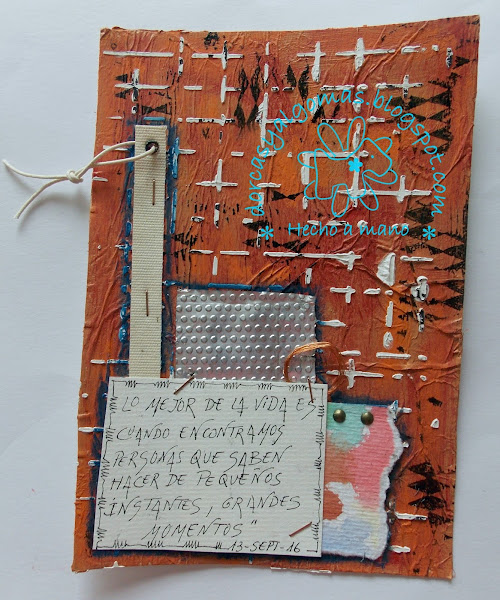 * dorcasyalgomas.blogspot.com *
Hecho a mano
LO MEJOR DE LA VIDA ES
CUANDO ENCONTRAMOS
PERSONAS QUE SABEN
HACER DE PEQUEÑOS
INSTANTES, GRANDES
MOMENTOS"
13-SEPT-16